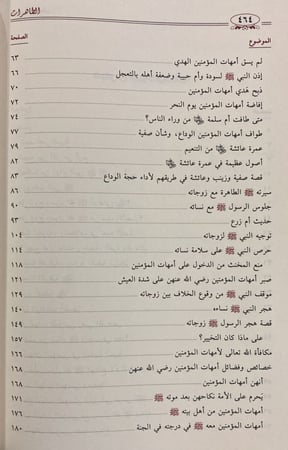 ٤٦٤ الطاهرات
الموضوع الصفحة
لم يسق أمهات المؤمنين الهدي ٦٣
إذن النبي ﷺ لسودة وأم حبيبة وضعفة أهله بالتعجل ٦٦
ذبح هدي أمهات المؤمنين ٧٠
إفاضة أمهات المؤمنين يوم النحر ٧٢
متى طافت أم سلمة رضي الله عنها من وراء الناس؟ ٧٤
طواف أمهات المؤمنين الوداع، وشأن صفية ٧٧
عمرة عائشة رضي الله عنها من التنعيم ٧٩
أصول عظيمة في عمرة عائشة ٨٢
قصة صفية وزينب وعائشة في طريقهم لأداء حجة الوداع ٨٣
سيرته ﷺ الطاهرة مع زوجاته ٨٦
جلوس الرسول ﷺ مع نسائه ٩٠
حديث أم زرع ٩٣
توجيه النبي ﷺ لزوجاته ١٠٤
حرص النبي ﷺ على سلامة نسائه ١١٤
منع المخنث من الدخول على أمهات المؤمنين ١١٨
صبر أمهات المؤمنين رضي الله عنهن على شدة العيش ١٢١
موقف النبي ﷺ من وقوع الخلاف بين زوجاته ١٢٩
هجر النبي ﷺ نساءه ١٤٠
قصة هجر الرسول ﷺ زوجاته ١٤٩
على ماذا كان التخيير؟ ١٥٧
مكافأة الله تعالى لأمهات المؤمنين ١٦٦
خصائص وفضائل أمهات المؤمنين رضي الله عنهن ١٦٨
أنهن أمهات المؤمنين ١٦٨
يُحرم على الأمة نكاحهن بعد موته ﷺ ١٧١
أمهات المؤمنين من أهل بيته ﷺ ١٧٦
أمهات المؤمنين معه ﷺ في درجته في الجنة ١٨٠